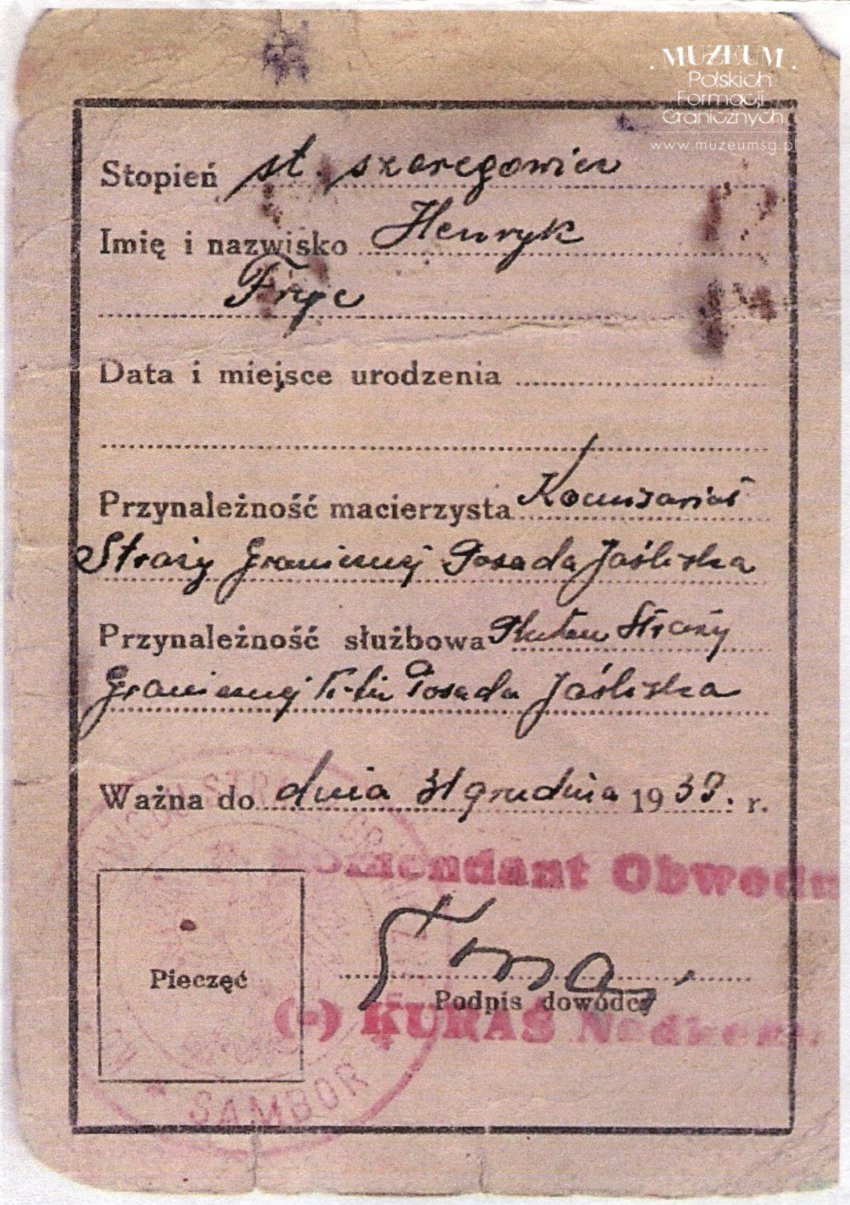 . MUZEUM .
Polskich
Formacji
Granicznych
www.muzeumsg.pl
Stopień st. szeregowiec
Imię i nazwisko Henryk
Fryc
Data i miejsce urodzenia
Przynależność macierzysta Komisariat
Straży Granicznej Posada Jaśliska
Przynależność służbowa Pluton Straży
Granicznej Posada Jaśliska
Ważna do dnia 31 grudnia 1939. r.
Komendant Obwodu
Pieczęć
Podpis dowódcy
(-) KURAŚ Nadkom.
SAMBOR